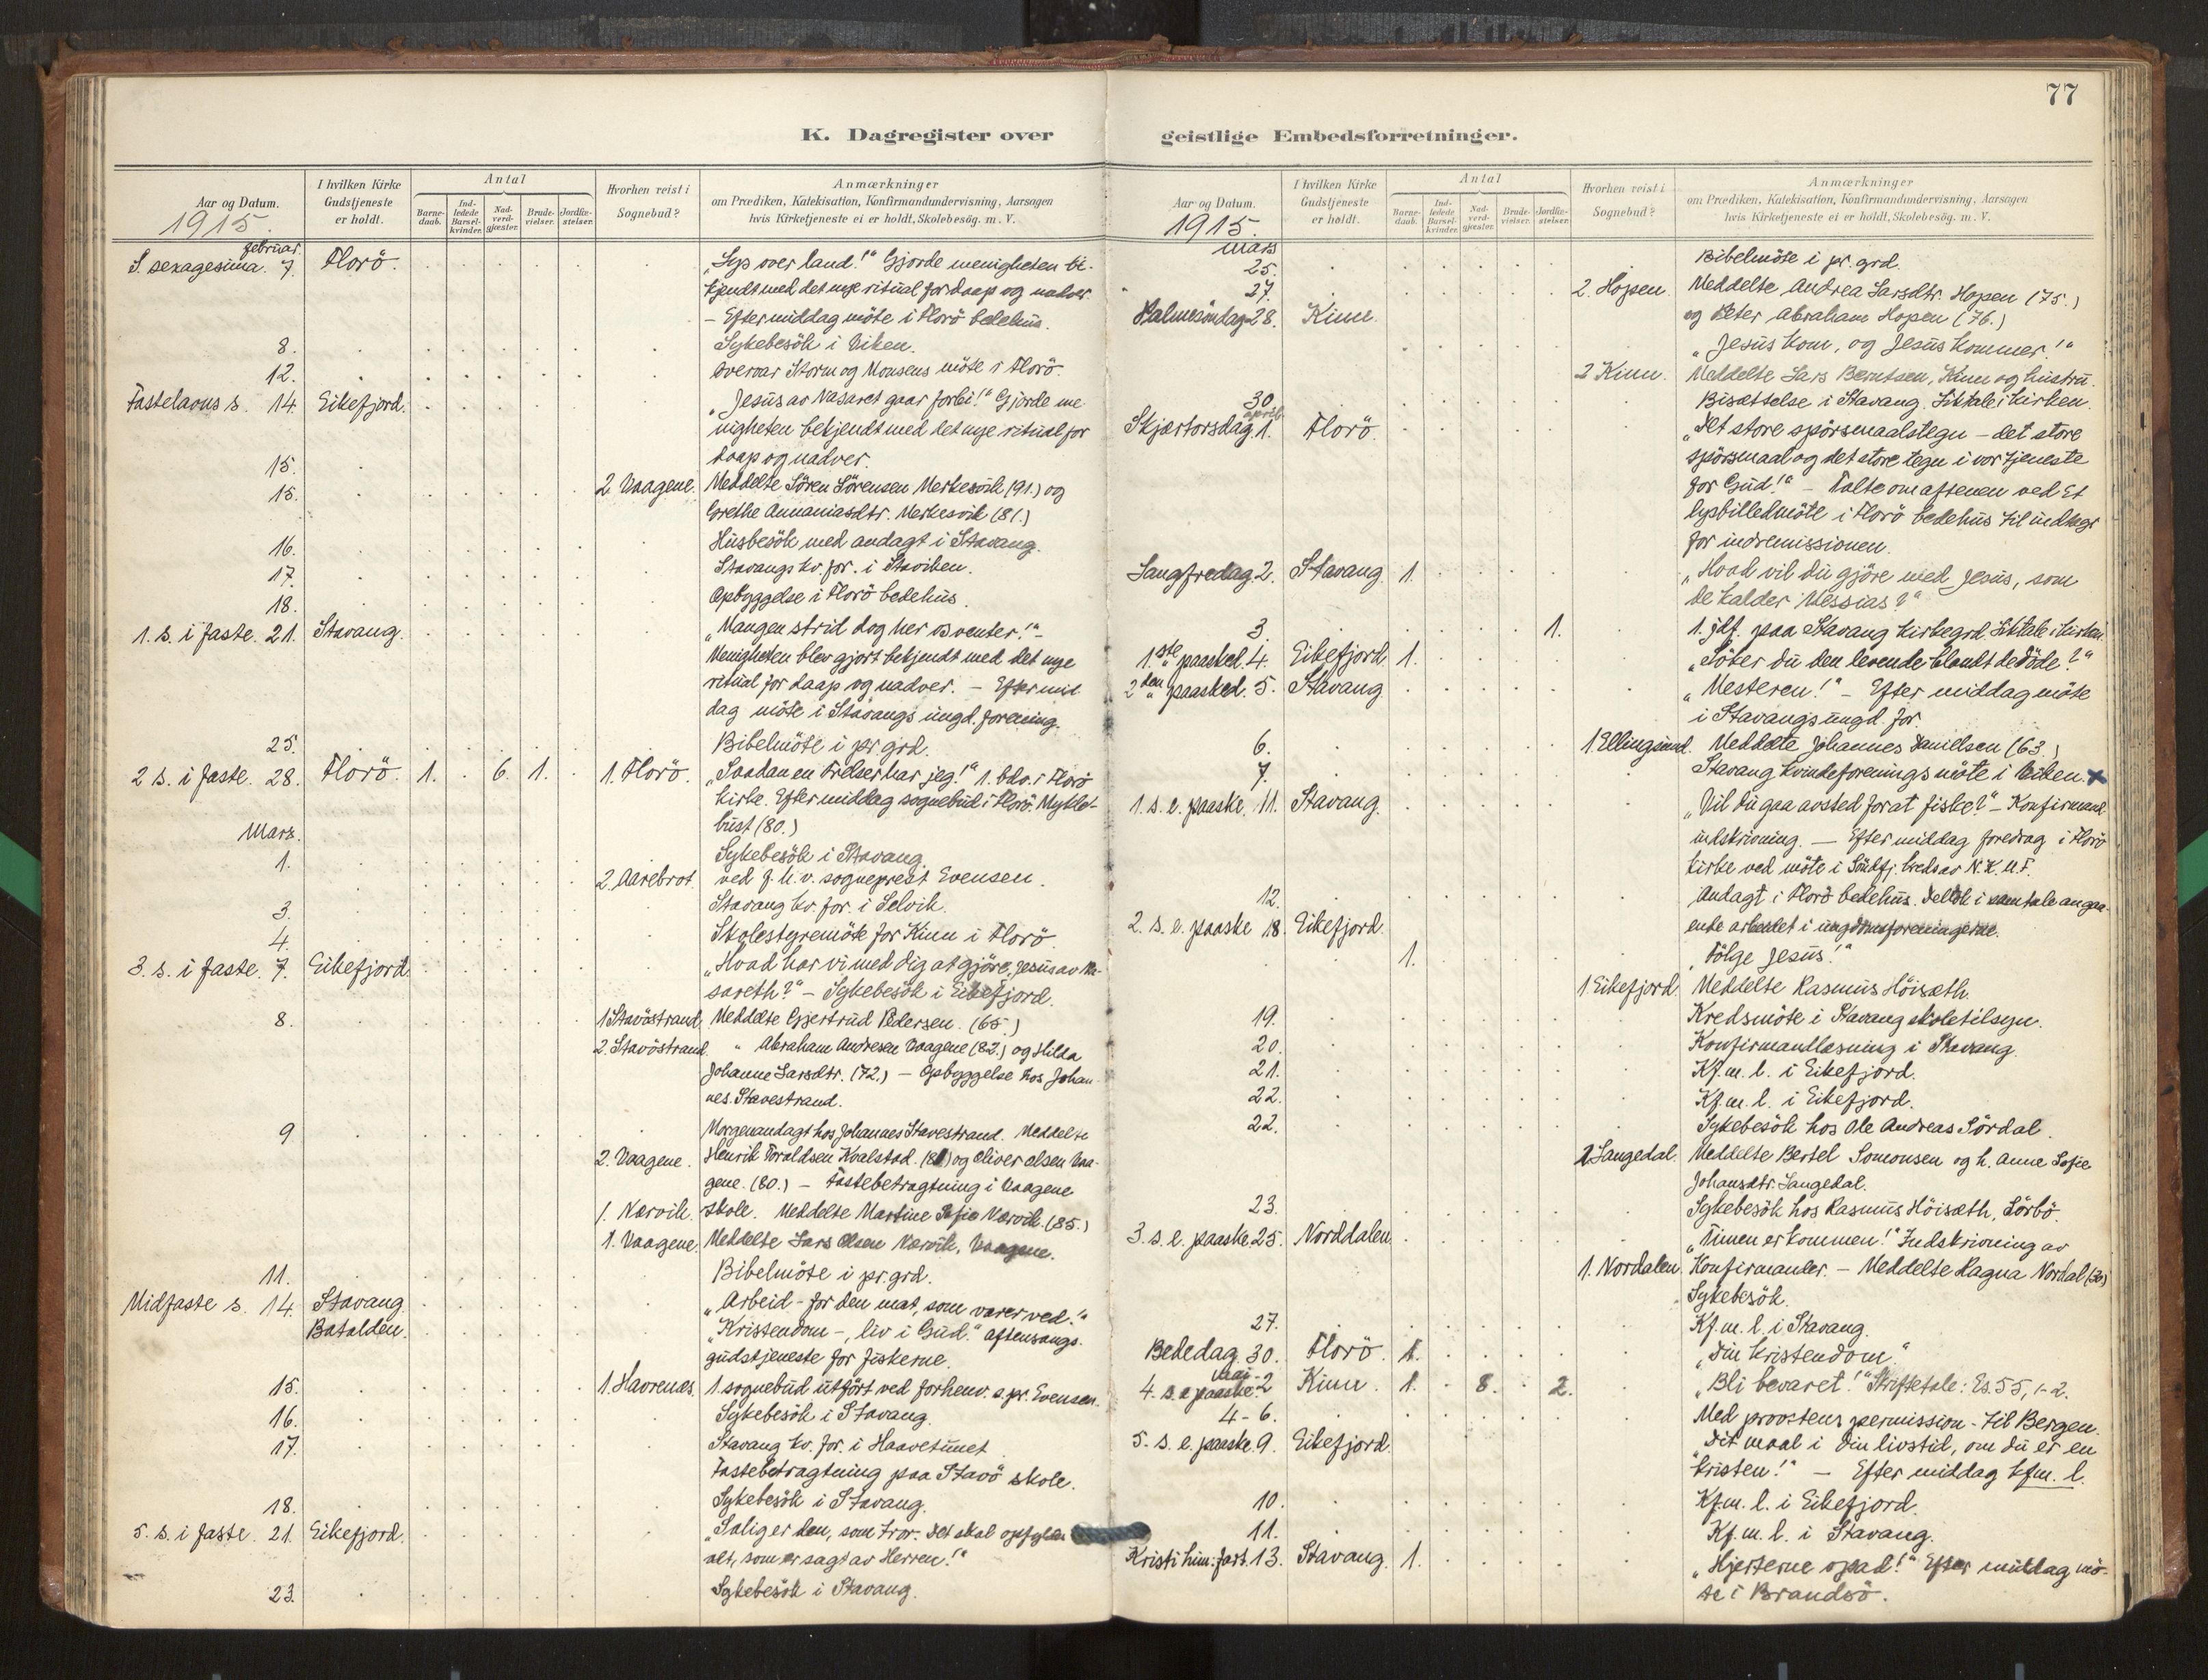 77
K. Dagregister over geistlige Embedsforretninger.
Aar og Datum.
1915.
I hvilken Kirke Gudstjeneste er holdt.
Antal
Barne-daab.
Ind-ledede Barsel-kvinder.
Nad-verd-gjæster.
Brude-vielser.
Jordfæ-stelser.
Hvorhen reist i Sognebud?
Anmærkninger
om Prædiken, Katekisation, Konfirmandundervisning, Aarsagen
hvis Kirketjeneste ei er holdt, Skolebesög. m. V.
februar.
S. sexagesima. 7. Florö. „Lys over land!“ Gjorde menigheten be-
kjendt med det nye ritual for daap og nadver.
– Eftermiddag möte i Florö bedehus.
8. Sykebesök i Viken.
12. Overvar Storm og Monsens möte i Florö.
Fastelavns s. 14 Eikefjord. „Jesus av Nasaret gaar forbi!“ Gjorde me
nigheten bekjendt med det nye ritual for
daap og nadver.
15.
15. 2 Vaagene. Meddelte Sören Sörensen Merkesvik (91.) og
Grethe Annaniasdtr. Merkesvik (81.)
16. Husbesök med andagt i Stavang.
17. Stavangs kv. for. i Staviken.
18. Opbyggelse i Florö bedehus.
1. s. i faste. 21. Stavang. „Mangen strid dog her os venter!“ –
Menigheten blev gjort bekjendt med det nye
ritual for daap og nadver. – Eftermid
dag möte i Stavangs ungd. forening.
25. Bibelmöte i pr. grd.
2 s. i faste. 28. Florö. 1. 6. 1. 1. Florö. „Saadan en Frelser har jeg!“ 1. bdv. i Florö
kirke. Eftermiddag sognebud i Florö. Myklet-
bust (80.)
Mars.
1. Sykebesök i Stavang.
2 Aarebrot. ved f. h. v. sogneprest Evensen.
3. Stavang kv. for. i Selvik.
4. Skolestyremöte for Kinn i Florö.
3. s. i faste. 7. Eikefjord. „Hvad har vi med dig at gjöre, Jesus av Na-
sareth?“ – Sykebesök i Eikefjord.
8. 1 Stavöstrand. Meddelte Gjertrud Pedersen. (65.)
2. Stavöstrand. " Abraham Andresen Vaagene (82.) og Hilda
Johanne Larsdtr. (72.) – Opbyggelse hos Johan-
nes. Stavestrand.
9 Morgenandagt hos Johannes Stavestrand. Meddelte
2. Vaagene. Henrik Toraldsen Kvalstad. (81) og Oliver Olsen Vaa-
gene. (80.) – Fastebetragtning i Vaagene
1. Nærvik. skole. Meddelte Martine Sofie Nærvik. (85.)
1. Vaagene. Meddelte Lars Olsen Nærvik, Vaagene.
11. Bibelmöte i pr. grd.
Midfaste s. 14 Stavang. „Arbeid – for den mat, som varer ved.“
Batalden. „Kristendom –, liv i Gud.“ aftensangs-
gudstjeneste for fiskerne.
15. 1. Havrenes. 1. sognebud utfört ved forhenv. s. pr. Evensen.
16. Sykebesök i Stavang.
17. Stavang kv. for. i Haavetunet
Fastebetragtning paa Stavö skole.
18. Sykebesök i Stavang.
5. s. i faste. 21. Eikefjord. „Salig er den, som tror. Det skal opfyldes
alt, som er sagt av Herren!“
23. Sykebesök i Stavang.
Aar og Datum.
1915.
I hvilken Kirke Gudstjeneste er holdt.
Antal
Barne-daab.
Ind-ledede Barsel-kvinder.
Nad-verd-gjæster.
Brude-vielser.
Jordfæ-stelser.
Hvorhen reist i Sognebud?
Anmærkninger
om Prædiken, Katekisation, Konfirmandundervisning, Aarsagen
hvis Kirketjeneste ei er holdt, Skolebesög. m. V.
mars
25. Bibelmöte i pr. grd.
27. 2. Hopen. Meddelte Andrea Larsdtr. Hopen (75.)
og Peter Abraham Hopen (76.)
Palmesöndag 28. Kinn. „Jesus kom, og Jesus kommer!“
2 Kinn. Meddelte Lars Berntsen, Kinn og hustru.
30. Bisættelse i Stavang. Liktale i kirken.
april
Skjærtorsdag 1. Florö. „Det store spörsmaalstegn – det store
spörsmaal og det store tegn i vor tjeneste
for Gud!“ – Talte om aftenen ved et
lysbilledmöte i Florö bedehus til indtægt
for indremissionen.
Langfredag 2. Stavang 1. „Hvad vil du gjöre med Jesus, som
de kalder Messias?“
3. 1. 1. jdf. paa Stavang kirkegrd. Liktale i kirken.
1.ste paasked. 4. Eikefjord. 1. „Söker du den levende blandt de döde?“
2den paasked. 5. Stavang „Mesteren!“ – Eftermiddag möte
i Stavangs ungd. for
6. 1 Ellingsund. Meddelte Johannes Danielsen (63.)
7. Stavang kvindeforenings möte i Viken. x
1. s. e. paaske. 11. Stavang. „Vil du gaa avsted for at fiske?“ – Konfirmand
indskrivning. – Eftermiddag foredrag i Florö
kirke ved möte i Söndfj. kreds av N. K. U. F.
12. Andagt i Florö bedehus. Deltok i samtale angaa-
ende arbeidet i ungdomsforeningerne.
2. s. e. paaske 18. Eikefjord. 1. „Fölge Jesus!“
1 Eikefjord. Meddelte Rasmus Höisæth.
19. Kredsmöte i Stavang skoletilsyn.
20. Konfirmandlæsning i Stavang.
21. Kf. m. l. i Eikefjord.
22. Kf. m. l. i Eikefjord.
22. Sykebesök hos Ole Andreas Sördal.
2 Langedal. Meddelte Bertel Simonsen og h. Anne Sofie
Johansdtr. Langedal.
23. Sykebesök hos Rasmus Höisæth, Sörbö.
3. s. e. paaske 25. Norddalen. „Timen er kommen!“ Indskrivning av
1. Nordalen. Konfirmander. – Meddelte Ragna Nordal
Sykebesök.
27. Kf. m. l. i Stavang.
Bededag. 30. Florö. 1. „Din kristendom.“
mai
4. s. e. paaske 2 Kinn. 1. 8. 2. „Bli bevaret!“ Skriftetale: Es. 55, 1-2.
4-6. Med provstens permission – til Bergen.
5. s. e. paaske 9. Eikefjord. „Dit maal i din livstid, om du er en
kristen!“ – Eftermiddag kfm. l.
10. Kf. m. l. i Eikefjord.
11. Kf. m. l. i Stavang.
Kristi him. fart. 13. Stavang. 1. „Hjerterne opad!“ Eftermiddag mö-
te i Brandsö.